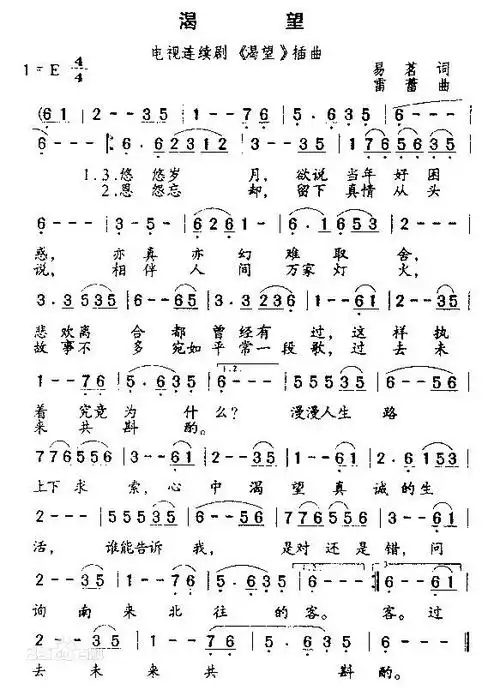 渴 望
电视连续剧《渴望》插曲
1=E 4/4
易 茗 词
雷 蕾 曲
(61 | 2--35 | 1--76 | 5·635 | 6--- |
6--5 | 6·62312 | 3--35 | 1765635 |
1.3.悠 悠岁 月, 欲说 当年 好 困
2.恩 怨忘 却, 留下 真情 从 头
6--- | 3-5- | 6261- | 6·1653 | 2--- |
惑, 亦真 亦幻 难 取 舍,
说, 相伴 人间 万家 灯 火,
3·3535 | 6--65 | 3·3236 | 1--61 | 2--35 |
悲 欢离 合都 曾 经有 过,这 样执
故 事不 多宛 如平 常一 段 歌,过 去未
1--76 | 5·635 | 6--- | 55535 | 6--56 |
1.2.
着 究竟 为 什 么? 漫漫人生 路
来共斟 酌。
776556 | 3--61 | 2--35 | 1--61 | 2·6153 |
上下 求 索,心 中 渴 望 真 诚 的 生
2--- | 55535 | 6--56 | 776535 | 3--61 |
活, 谁能告诉 我, 是 对 还 是 错,问
2--35 | 1--76 | 5·635 | 6--- :| 6--61 |
1.2.
3.
询 南 来 北 往 的 客。 客。过
2--35 | 1--76 | 5--635 | 6--- | 6--- ‖
去 未 来 共 斟 酌。